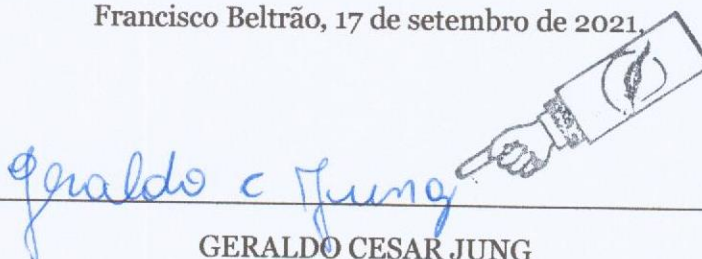 Francisco Beltrão, 17 de setembro de 2021,
Geraldo c Jung
GERALDO CESAR JUNG